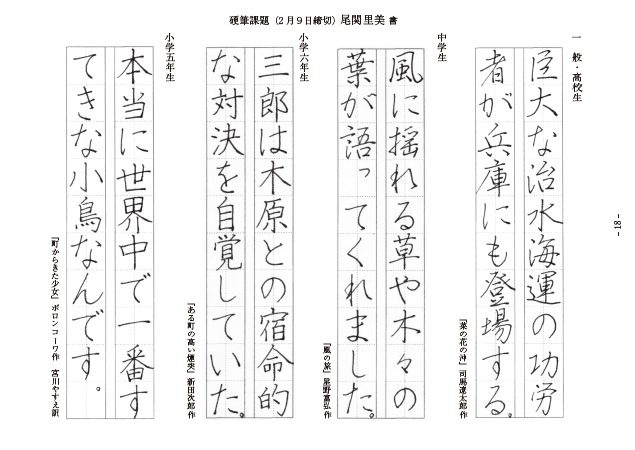 硬筆課題（2月9日締切）尾関里美 書
一般・高校生
巨大な治水海運の功労
者が兵庫にも登場する。
『菜の花の沖』司馬遼太郎 作
中学生
風に揺れる草や木々の
葉が語ってくれました。
『風の旅』星野富弘 作
小学六年生
三郎は木原との宿命的
な対決を自覚していた。
『ある町の高い煙突』新田次郎 作
小学五年生
本当に世界中で一番す
てきな小鳥なんです。
『町からきた少女』ボロンコーワ作 宮川やすえ訳
- 18 -